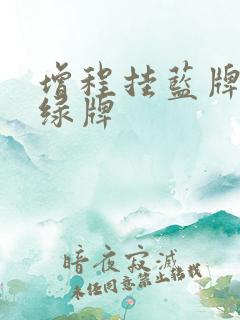 增程挂蓝牌
绿牌
暗夜寂灭
未经同意禁止转载